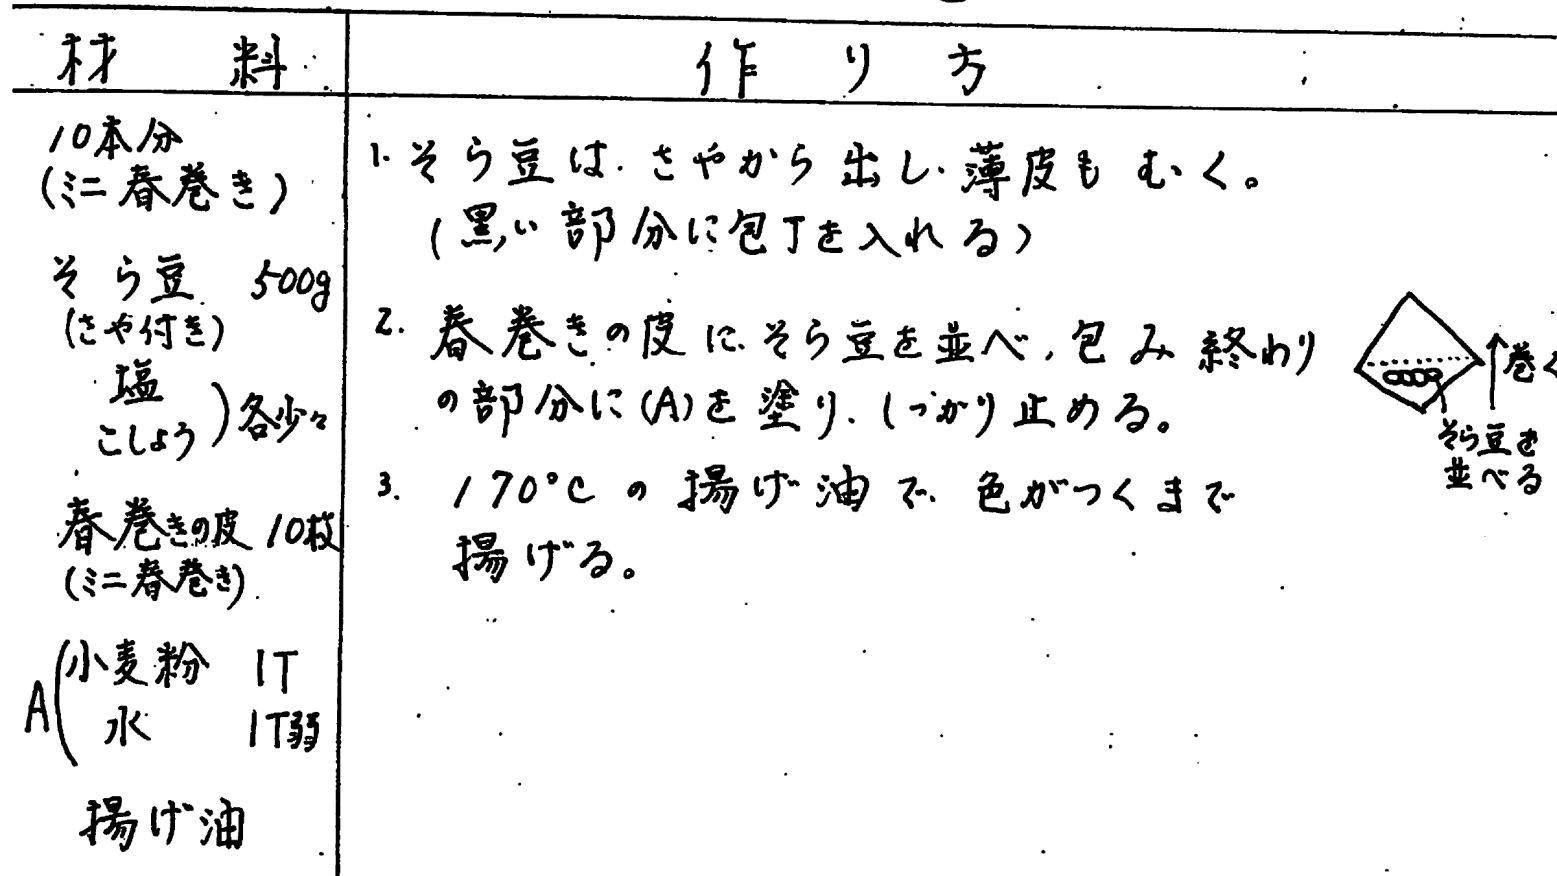 材料
作り方
10本分
(ミニ春巻き)
そら豆 500g
(さや付き)
塩
こしょう)各少々
春巻きの皮 10枚
(ミニ春巻き)
A(小麦粉 1T
水 1T弱
揚げ油
1. そら豆は、さやから出し、薄皮もむく。
(黒い部分に包丁を入れる)
2. 春巻きの皮に、そら豆を並べ、包み終わり
の部分に(A)を塗り、しっかり止める。
3. 170°Cの揚げ油で、色がつくまで
揚げる。
巻く
そら豆を
並べる